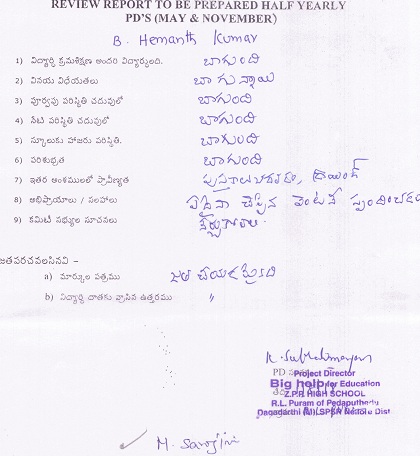 REVIEW REPORT TO BE PREPARED HALF YEARLY
PD'S (MAY & NOVEMBER)
B. Hemanth Kumar
1) విద్యార్థి క్రమశిక్షణ అందరి విద్యార్థులది. బాగుంది
2) వినయ విధేయతలు బాగున్నాయి
3) పూర్వపు పరిస్థితి చదువులో బాగుంది
4) నేటి పరిస్థితి చదువులో బాగుంది
5) స్కూలుకు హాజరు పరిస్థితి. బాగుంది
6) పరిశుభ్రత బాగుంది
7) ఇతర అంశములలో ప్రావీణ్యత డ్రాయింగ్
8) అభిప్రాయాలు / సలహాలు ఏదైనా చెప్పిన వెంటనే స్పందించడం
9) కమిటీ సభ్యుల సూచనలు
జతపరచవలసినవి -
a) మార్కుల పత్రము జత చేయడమైనది
b) విద్యార్థి దాతకు వ్రాసిన ఉత్తరము "
K. Subrahmanyam
PD
Project Director
Big help for Education
Z.P.P. HIGH SCHOOL
R.L. Puram of Pedaputhedu
Dagadarthi (M), SPSR Nellore Dist
M. Sarojini